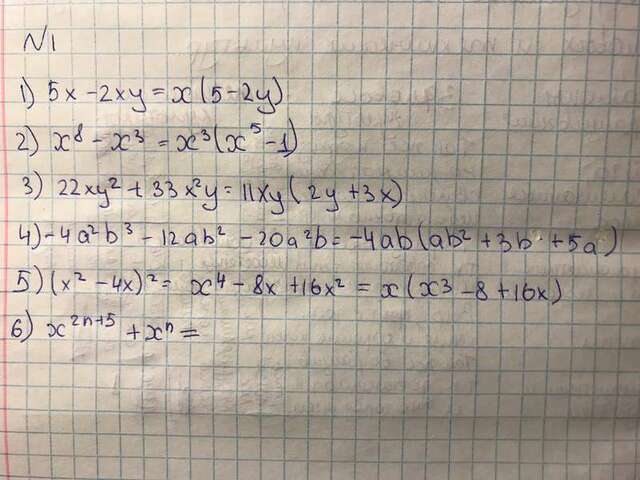 N1
1) 5x - 2xy = x(5-2y)
2) x⁸ - x³ = x³(x⁵-1)
3) 22xy² + 33x²y = 11xy(2y+3x)
4) -4a²b³ - 12ab² - 20a²b = -4ab(ab²+3b+5a)
5) (x² - 4x)² = x⁴ - 8x + 16x² = x(x³ - 8 + 16x)
6) x²ⁿ⁺⁵ + xⁿ =